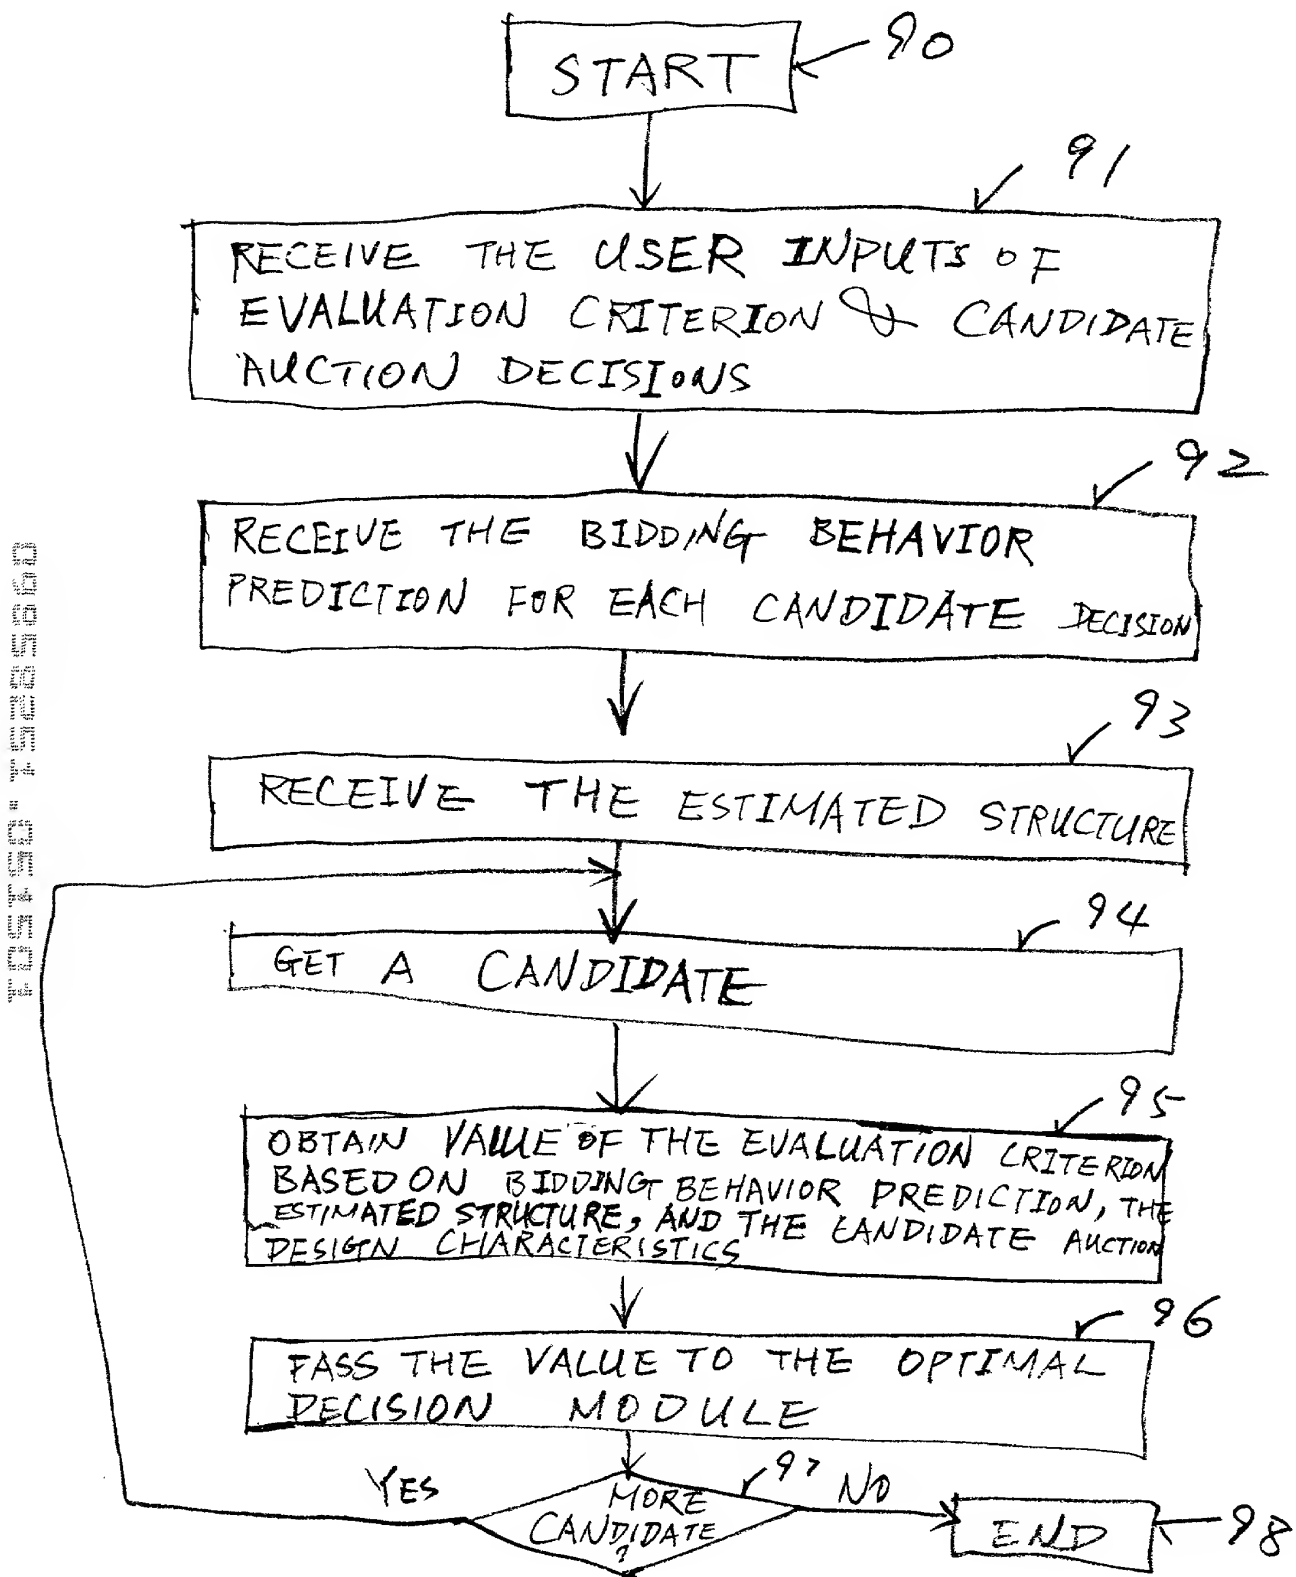 START
90
91
RECEIVE THE USER INPUTS OF
EVALUATION CRITERION & CANDIDATE
AUCTION DECISIONS
92
RECEIVE THE BIDDING BEHAVIOR
PREDICTION FOR EACH CANDIDATE DECISION
93
RECEIVE THE ESTIMATED STRUCTURE
94
GET A CANDIDATE
95
OBTAIN VALUE OF THE EVALUATION CRITERION
BASED ON BIDDING BEHAVIOR PREDICTION, THE
ESTIMATED STRUCTURE, AND THE CANDIDATE AUCTION
DESIGN CHARACTERISTICS
96
PASS THE VALUE TO THE OPTIMAL
DECISION MODULE
YES
97
NO
MORE
CANDIDATE
?
END
98
09858251.051501